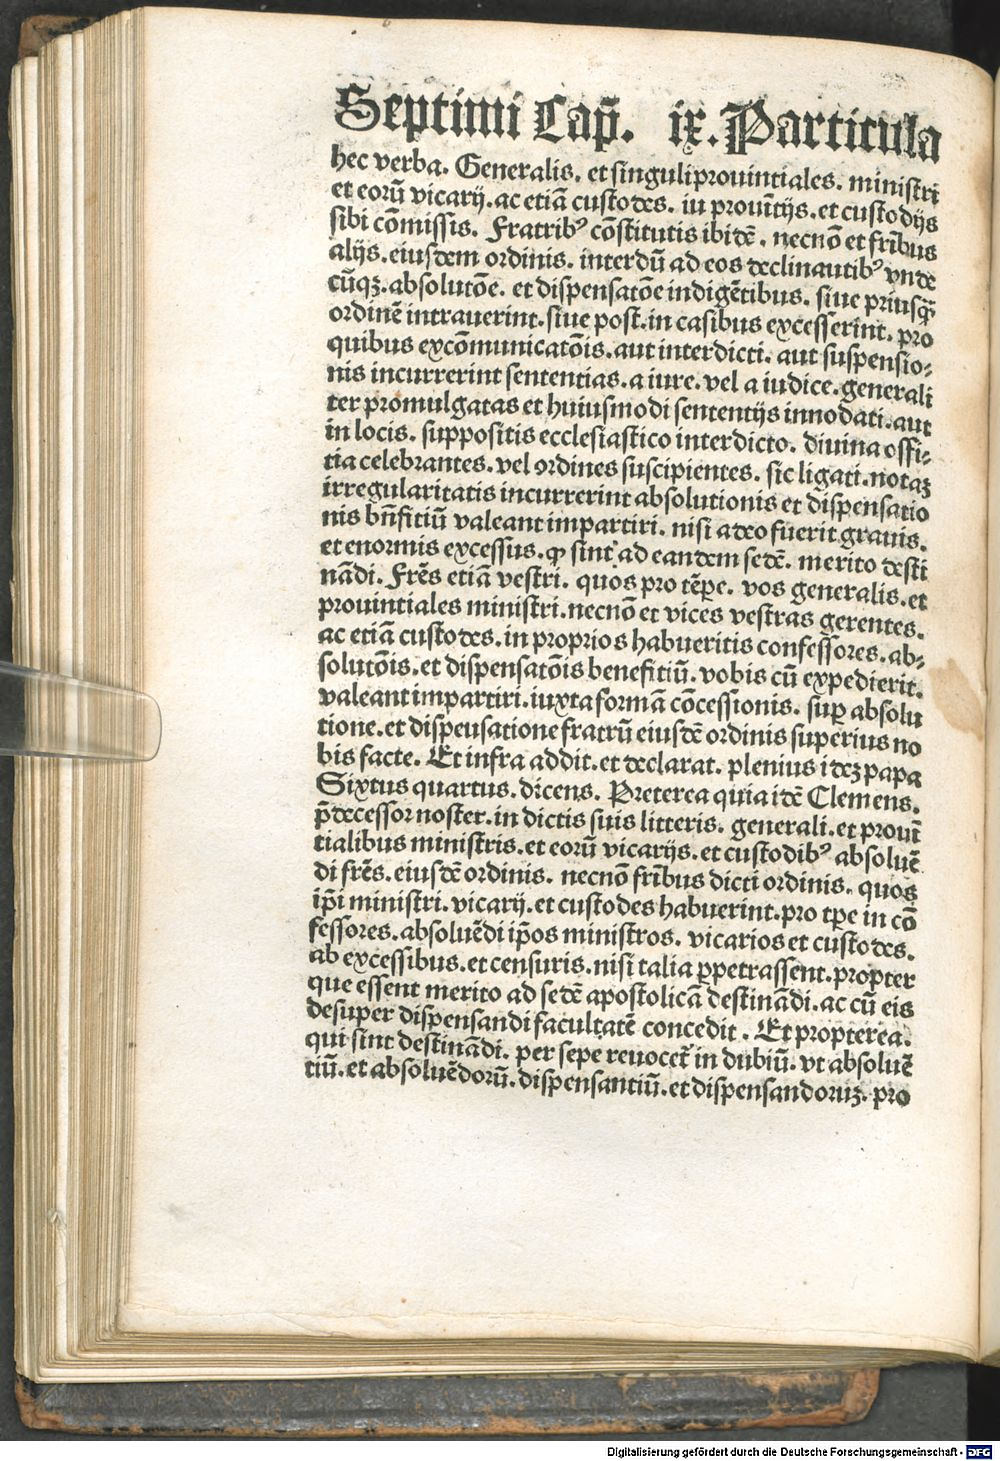 Septimi Cap̄. ix. Particula
hec verba. Generalis. et singuli prouintiales. ministri
et eorū vicarij. ac etiā custodes. iu prouītijs. et custodijs
sibi cōmissis. Fratribꝰ cōstitutis ibidē. necnō et fr̄ibus
alijs. eiusdem ordinis. interdū ad eos declinautibꝰ vnde
cūqꝫ. absolutōe. et dispensatōe indigētibus. siue priusq̄ꝫ
ordinē intrauerint. siue post. in casibus excesserint. pro
quibus excōmunicatōis. aut interdicti. aut suspensio⸗
nis incurrerint sententias. a iure. vel a iudice. generali
ter promulgatas et huiusmodi sententijs innodati. aut
in locis. suppositis ecclesiastico interdicto. diuina offi⸗
tia celebrantes. vel ordines suscipientes. sic ligati. notaꝫ
irregularitatis incurrerint absolutionis et dispensatio
nis bn̄fitiū valeant impartiri. nisi adeo fuerit grauis.
et enormis excessus. ꝙ sint ad eandem sedē. merito desti
nādi. Fr̄es etiā vestri. quos pro tēꝑe. vos generalis. et
prouintiales ministri. necnō et vices vestras gerentes.
ac etiā custodes. in proprios habueritis confessores. ab⸗
solutōis. et dispensatōis benefitiū. vobis cū expedierit.
valeant impartiri. iuxta formā cōcessionis. suꝑ absolu
tione. et dispeusatione fratrū eiusdē ordinis superius no
bis facte. Et infra addit. et declarat. plenius ideꝫ papa
Sixtus quartus. dicens. Preterea quia idē Clemens.
p̄decessor noster. in dictis suis litteris. generali. et prouī
tialibus ministris. et eorū vicarijs. et custodibꝰ absoluē
di fr̄es. eiusdē ordinis. necnō fr̄ibus dicti ordinis. quos
ip̄i ministri. vicarij. et custodes habuerint. pro tꝑe in cō
fessores. absoluēdi ip̄os ministros. vicarios et custodes.
ab excessibus. et censuris. nisi talia ꝑpetrassent. propter
que essent merito ad sedē apostolicā destinādi. ac cū eis
desuper dispensandi facultatē concedit. Et propterea.
qui sint destinādi. per sepe reuocet̄ in dubiū. vt absoluē
tiū. et absoluēdorū. dispensantiū. et dispensandoruꝫ. pro
Digitalisierung gefördert durch die Deutsche Forschungsgemeinschaft - DFG